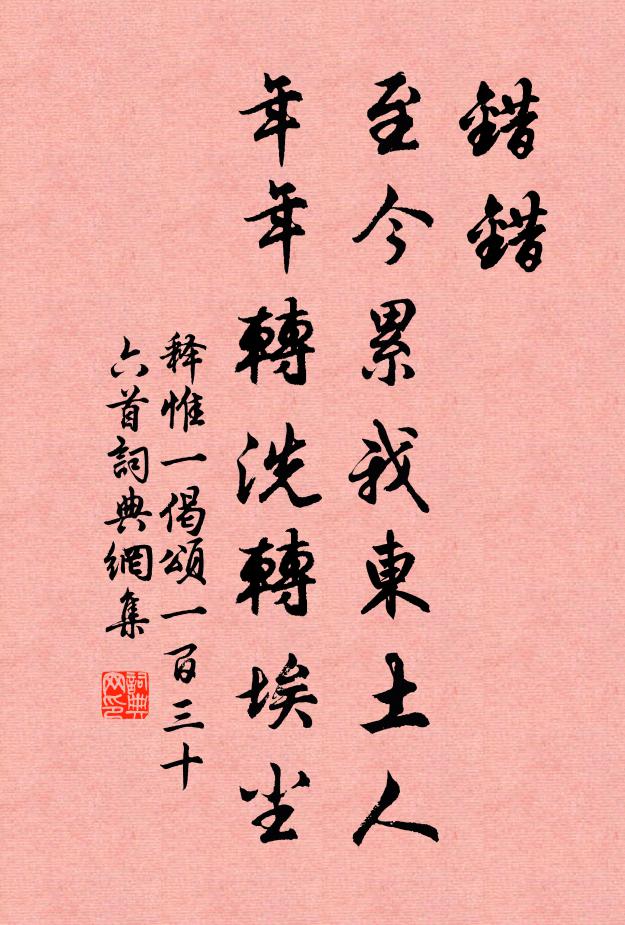 錯錯
至今累我東土人
年年轉洗轉埃尘
释惟一偈頌一百三十
六首詞典網集
詞典
网印